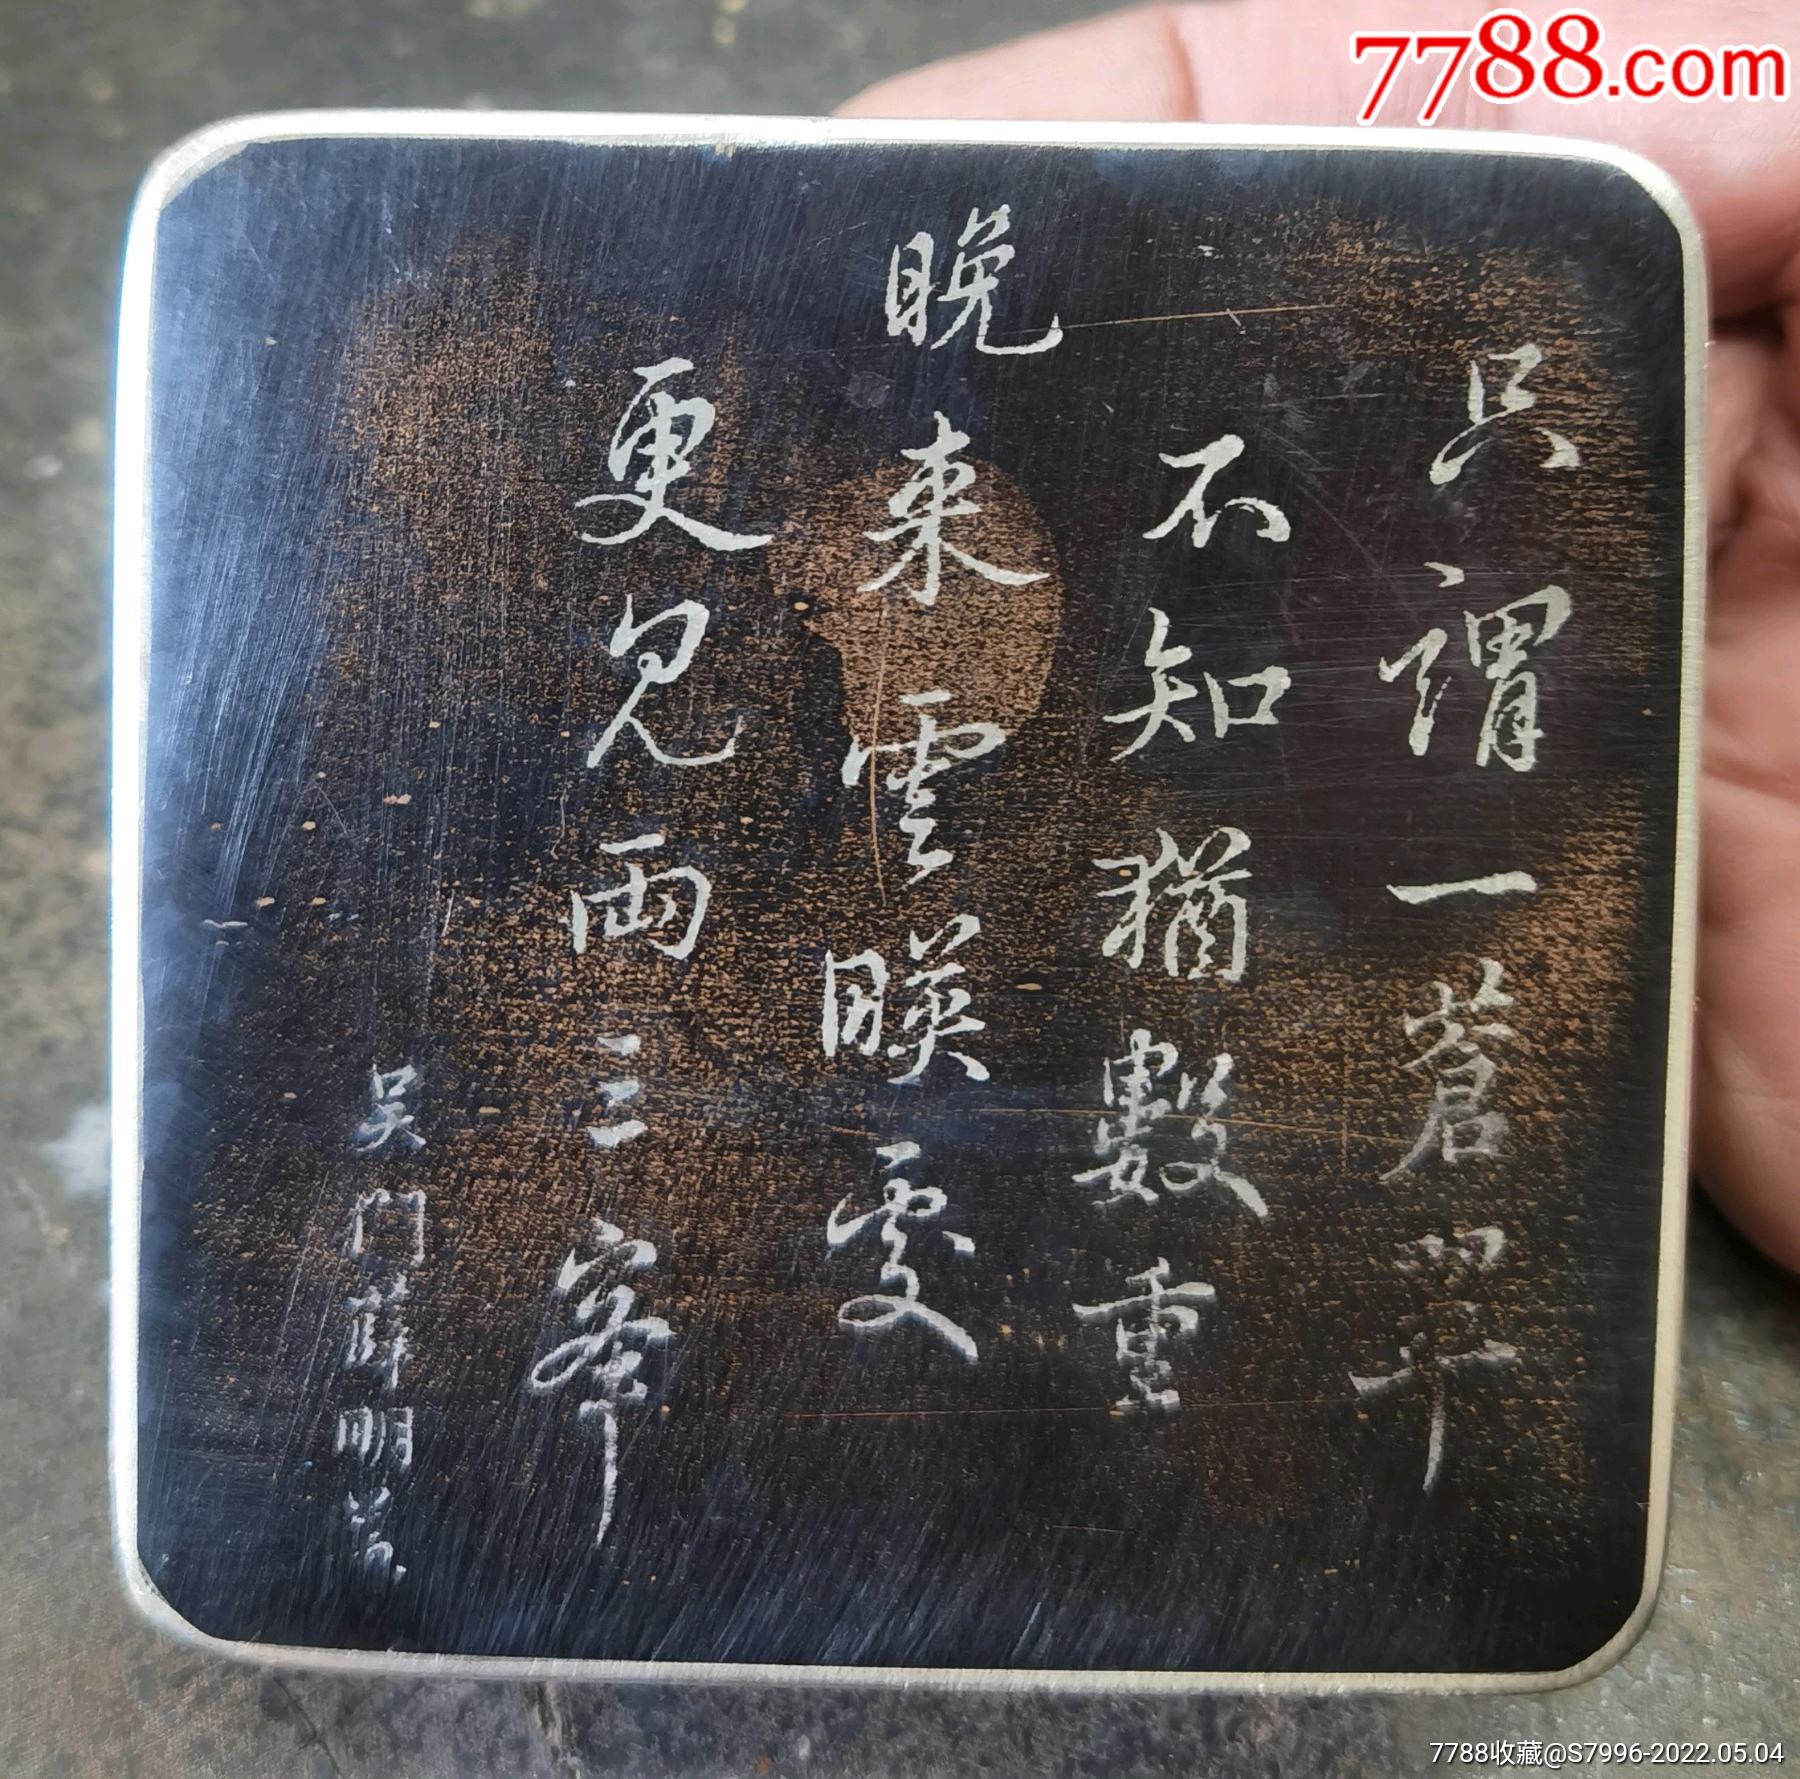 7788.com
只謂一蒼翠
不知猶數重
晚来雲暎處
更見兩三峯
吳門薛明益
7788收藏@S7996-2022.05.04